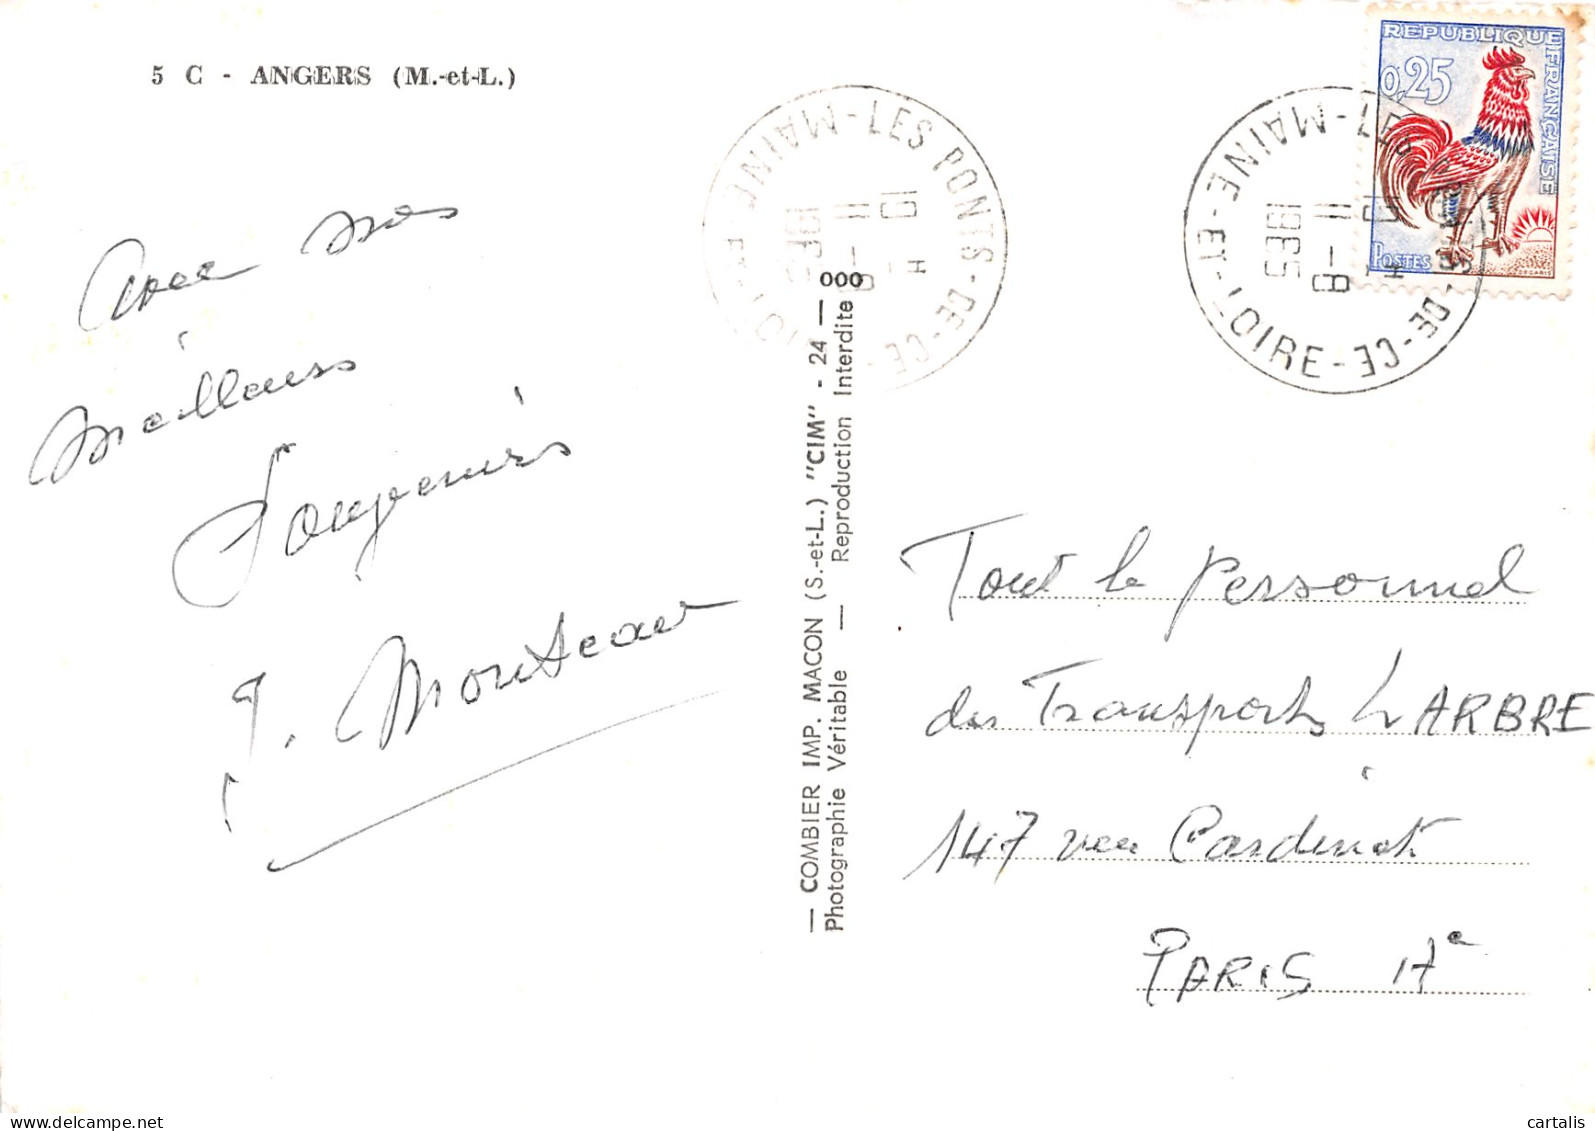 5 C - ANGERS (M.-et-L.)
Avec mes
meilleurs
Souvenirs
J. Monteau
— COMBIER IMP. MACON (S.-et-L.) "CIM" - 24 — 000
Photographie Véritable — Reproduction Interdite
LES PONTS-DE-CE - MAINE-ET-LOIRE
10 H
11 - 8
1965
LES PONTS-DE-CE - MAINE-ET-LOIRE
10 H
11 - 8
1965
REPUBLIQUE FRANÇAISE
0,25
POSTES
DECARIS
Tout le Personnel
des Transports LARBRE
147 rue Cardinet
PARIS 17e
cartalis
www.delcampe.net